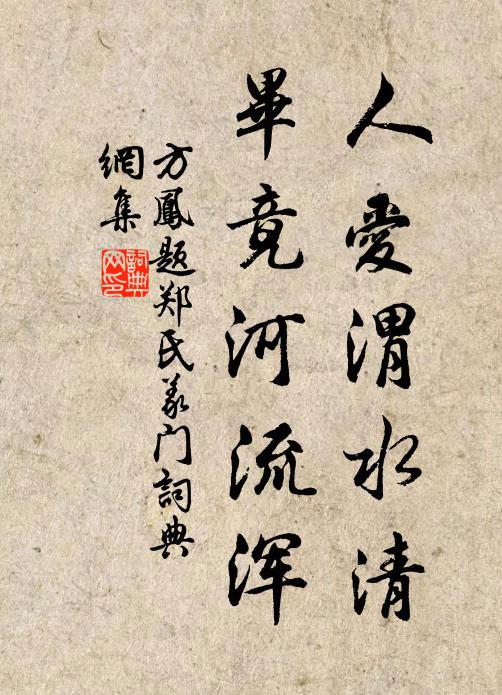 人愛渭水清
畢竟河流浑
方鳳題郑氏義门詞典
網集
詞典
网印